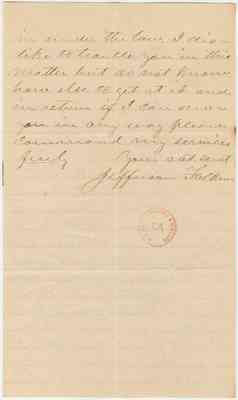 in under the law. I dis-
like to trouble you in this
matter but do not know
how else to get at it and
in return if I can serve
you in any way please
command my services
freely
Your obt servt
Jefferson